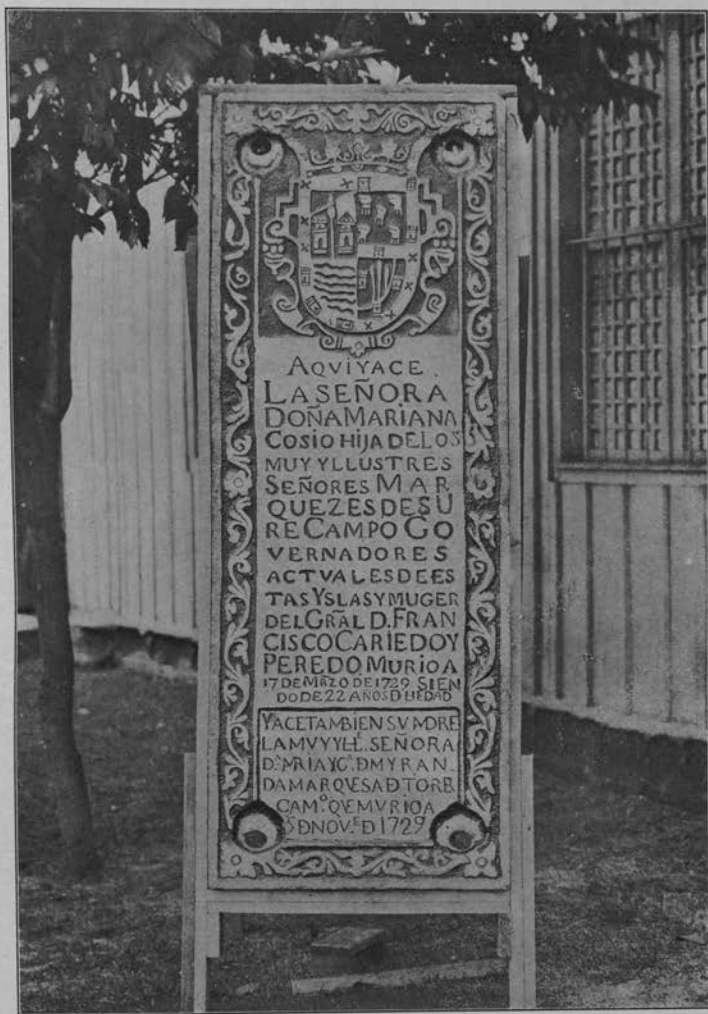 AQVI YACE.
LA SEÑORA
DOÑA MARIANA
COSIO HIJA DE LOS
MUY YLLUSTRES
SEÑORES MAR
QUEZES DE SU
RE CAMPO GO
VERNADORES
ACTVALES DE ES
TAS YSLAS Y MUGER
DEL GRÃL D. FRAN
CISCO CARIEDO Y
PEREDO, MURIO A
17 DE MRZO DE 1729 SIEN
DO DE 22 AÑOS D
YACE TAMBIEN SV MDRE
LA MVY YLE. SEÑORA
Dª MRIA YGª. D MYRAN
DA MARQVESA D TORR
CAMº QVE MVRIO A
5 D NOVE D 1729